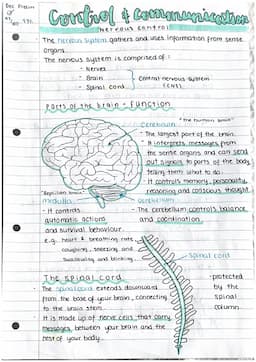 Control & communication
Nervous control
The nervous system gathers and uses information from sense
organs.
The nervous system is comprised of:
- Nerves
- Brain
- Spinal cord
Central nervous system
(CNS).
Parts of the brain - Function
Cerebrum "the human brain"
- The largest part of the brain.
- It interprets messages from
the sense organs and can send
out signals to parts of the body
telling them what to do.
- It controls memory, personality,
reasoning and conscious thought.
"Reptilian brain"
medulla
- It controls
automatic actions
and survival behaviour.
e.g. heart & breathing rate,
coughing, sneezing and
swallowing and blinking.
cerebellum
- The cerebellum controls balance
and coordination.
spinal cord
The spinal cord
- The spinal cord extends downward
from the base of your brain, connecting
to the brain stem.
- It is made up of nerve cells that carry
messages between your brain and the
rest of your body.
- protected
by the
spinal
column